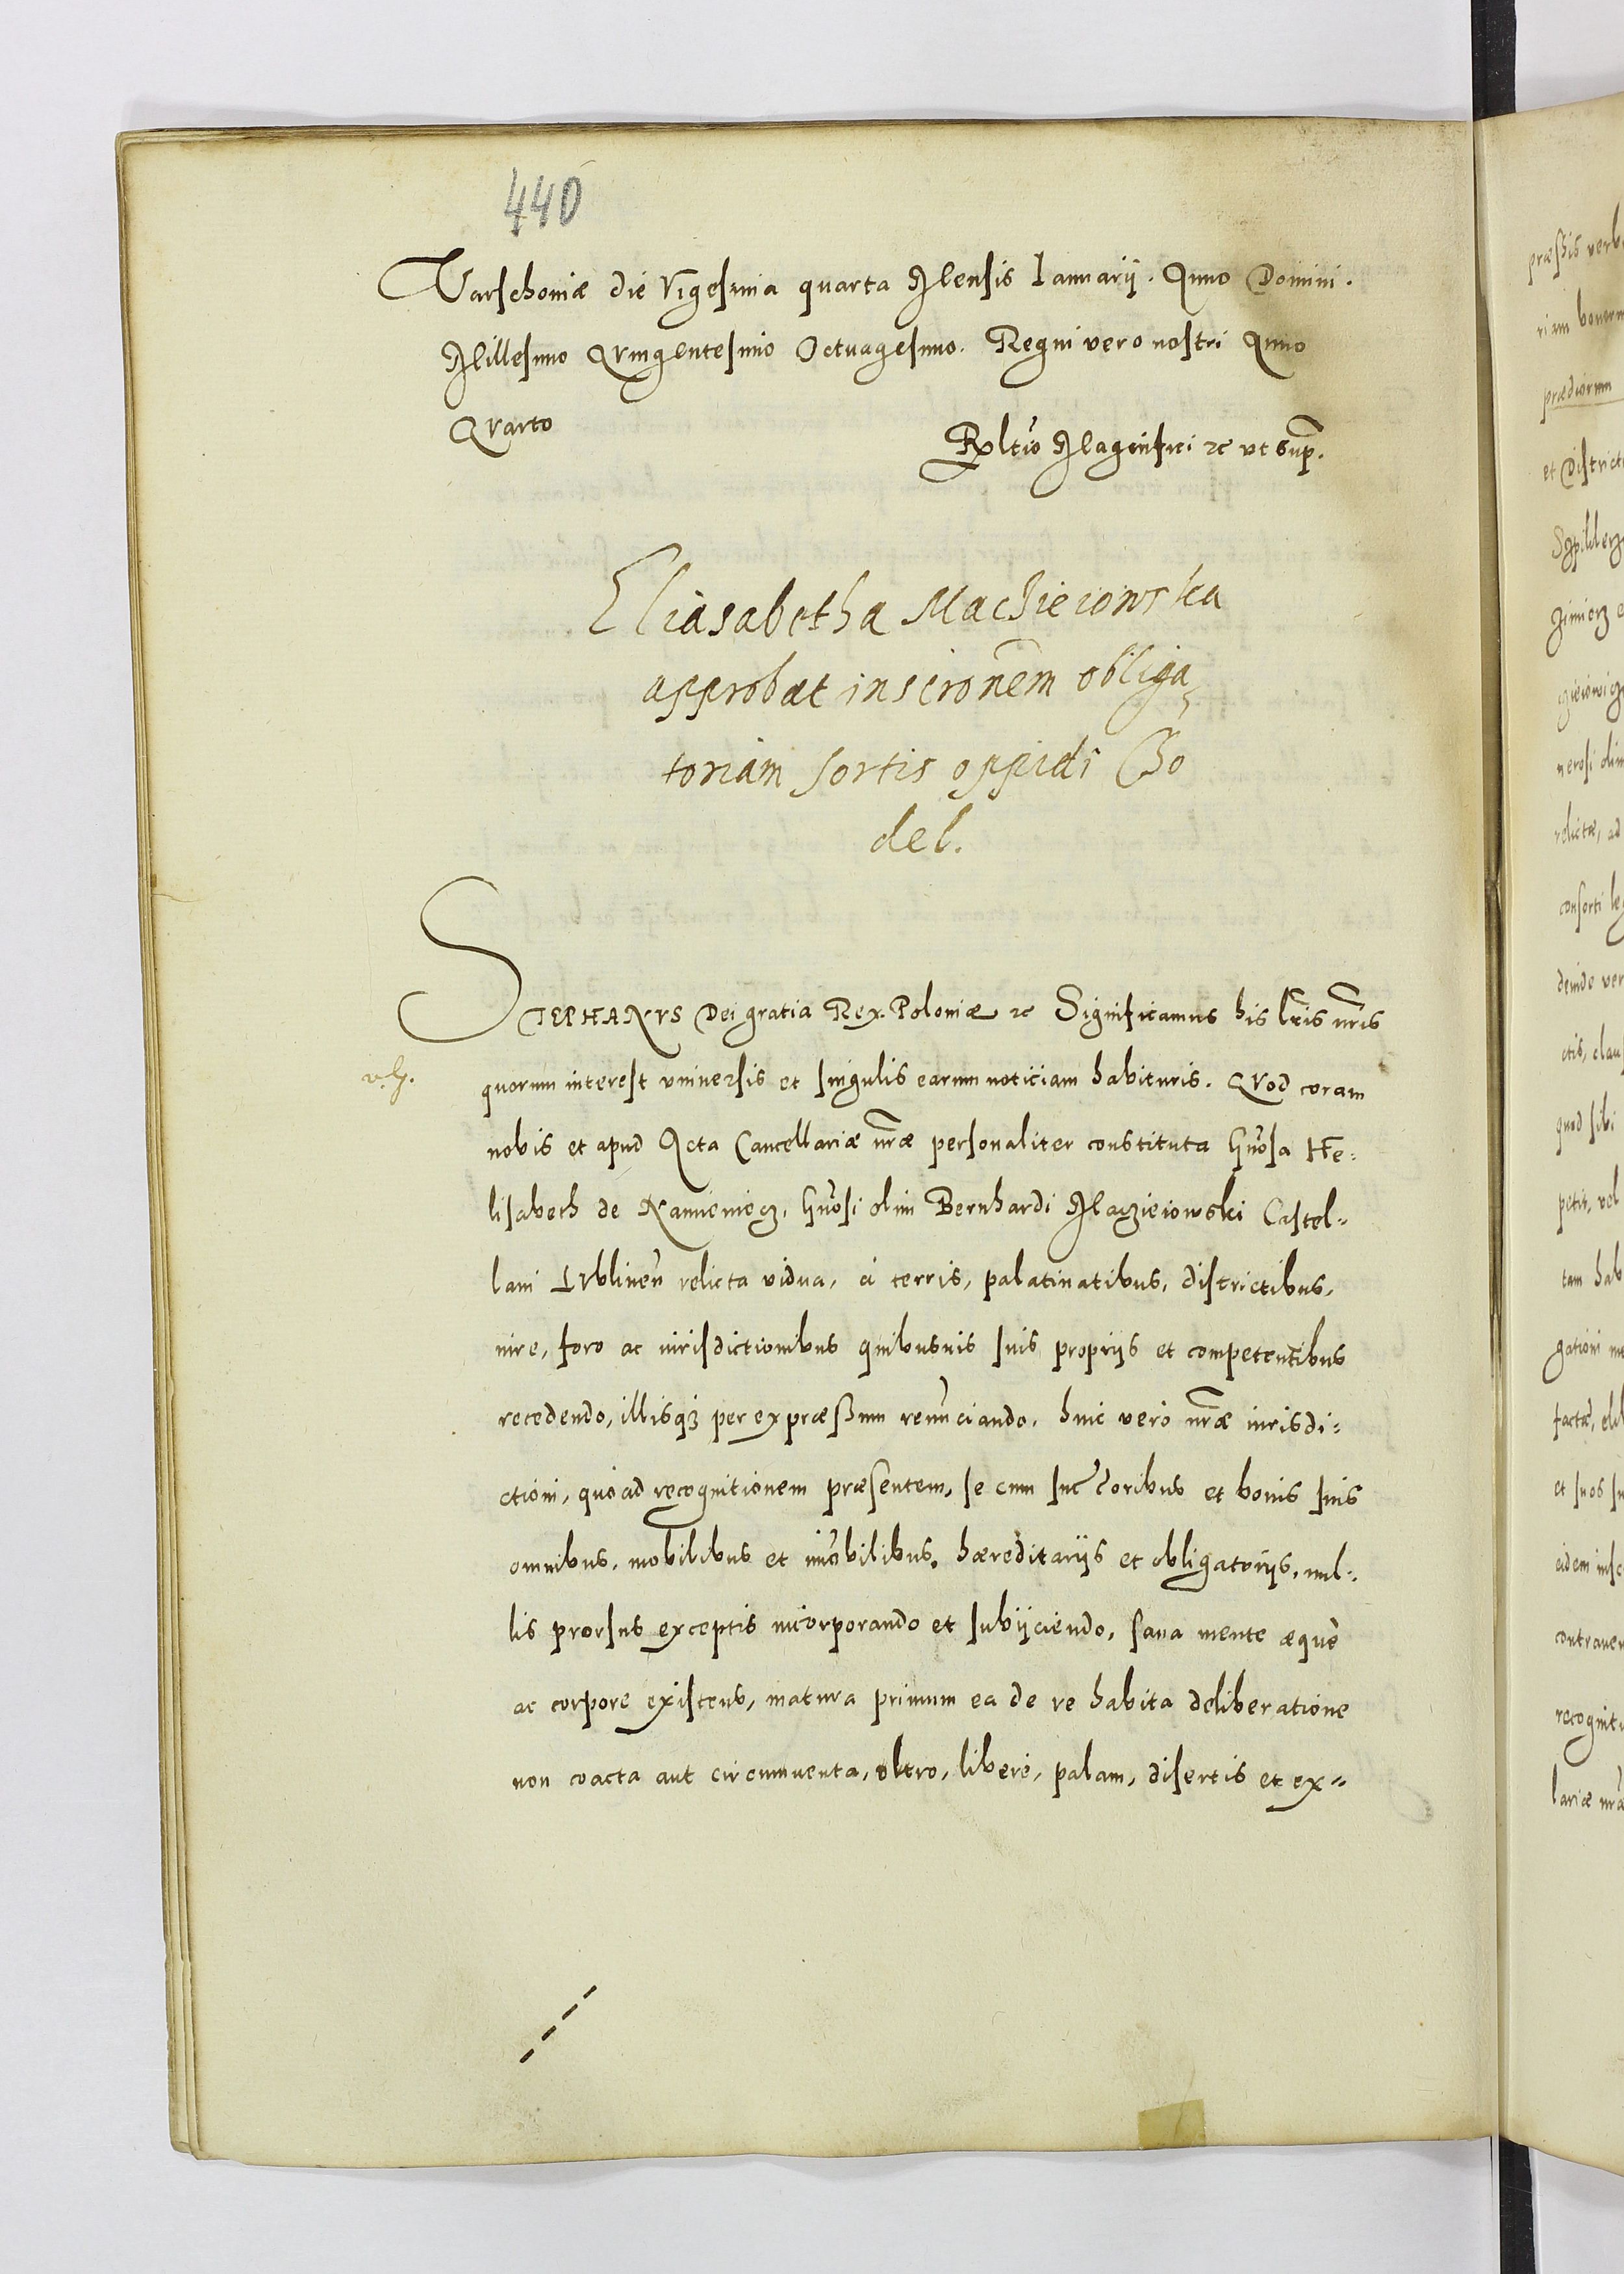 440
Varschoniæ die Vigesima quarta Mensis Ianuarij. Anno Domini.
Millesimo Qvingentesimo Octuagesimo. Regni vero nostri Anno
Qvarto
Rltio Magnifici ꝛc vt sup.
Eliasabetha Machieiowska
approbat inscronem obliga
toriam sortis oppidi Bo
del.
STEPHANVS Dei gratia Rex Poloniæ ꝛc Significamus his lris nris
v. G.
quorum interest vniuersis et singulis earum noticiam habituris. Qvod coram
nobis et apud Acta Cancellariæ nræ personaliter constituta Gnosa He⸗
lisabeth de Kamieniecz, Gnosi olim Bernhardi Maczieiowski Castel⸗
lani Lvblinen relicta vidua, à terris, palatinatibus, districtibus,
iure, foro ac iurisdictionibus quibusuis suis proprijs et competentibus
recedendo, illisqꝫ per expræßum renunciando, huic vero nræ iurisdi⸗
ctioni, quo ad recognitionem præsentem, se cum succoribus et bonis suis
omnibus, mobilibus et imobilibus, hæreditarijs et obligatorijs, nul⸗
lis prorsus exceptis incorporando et subijciendo, sana mente æquè
ac corpore existens, matura primum ea de re habita deliberatione
non coacta aut circumuenta, vltro, liberè, palam, disertis et ex⸗
præßis verb
riam bonorum
prædiorum
et District
nerosi olim
relictæ, ad
consorti le
deinde ver
ctis, clau
quod sibi
petit, vel
tam hab
gationi
factæ,
et suos su
eidem insc
contrauen
recognit
lariæ nræ